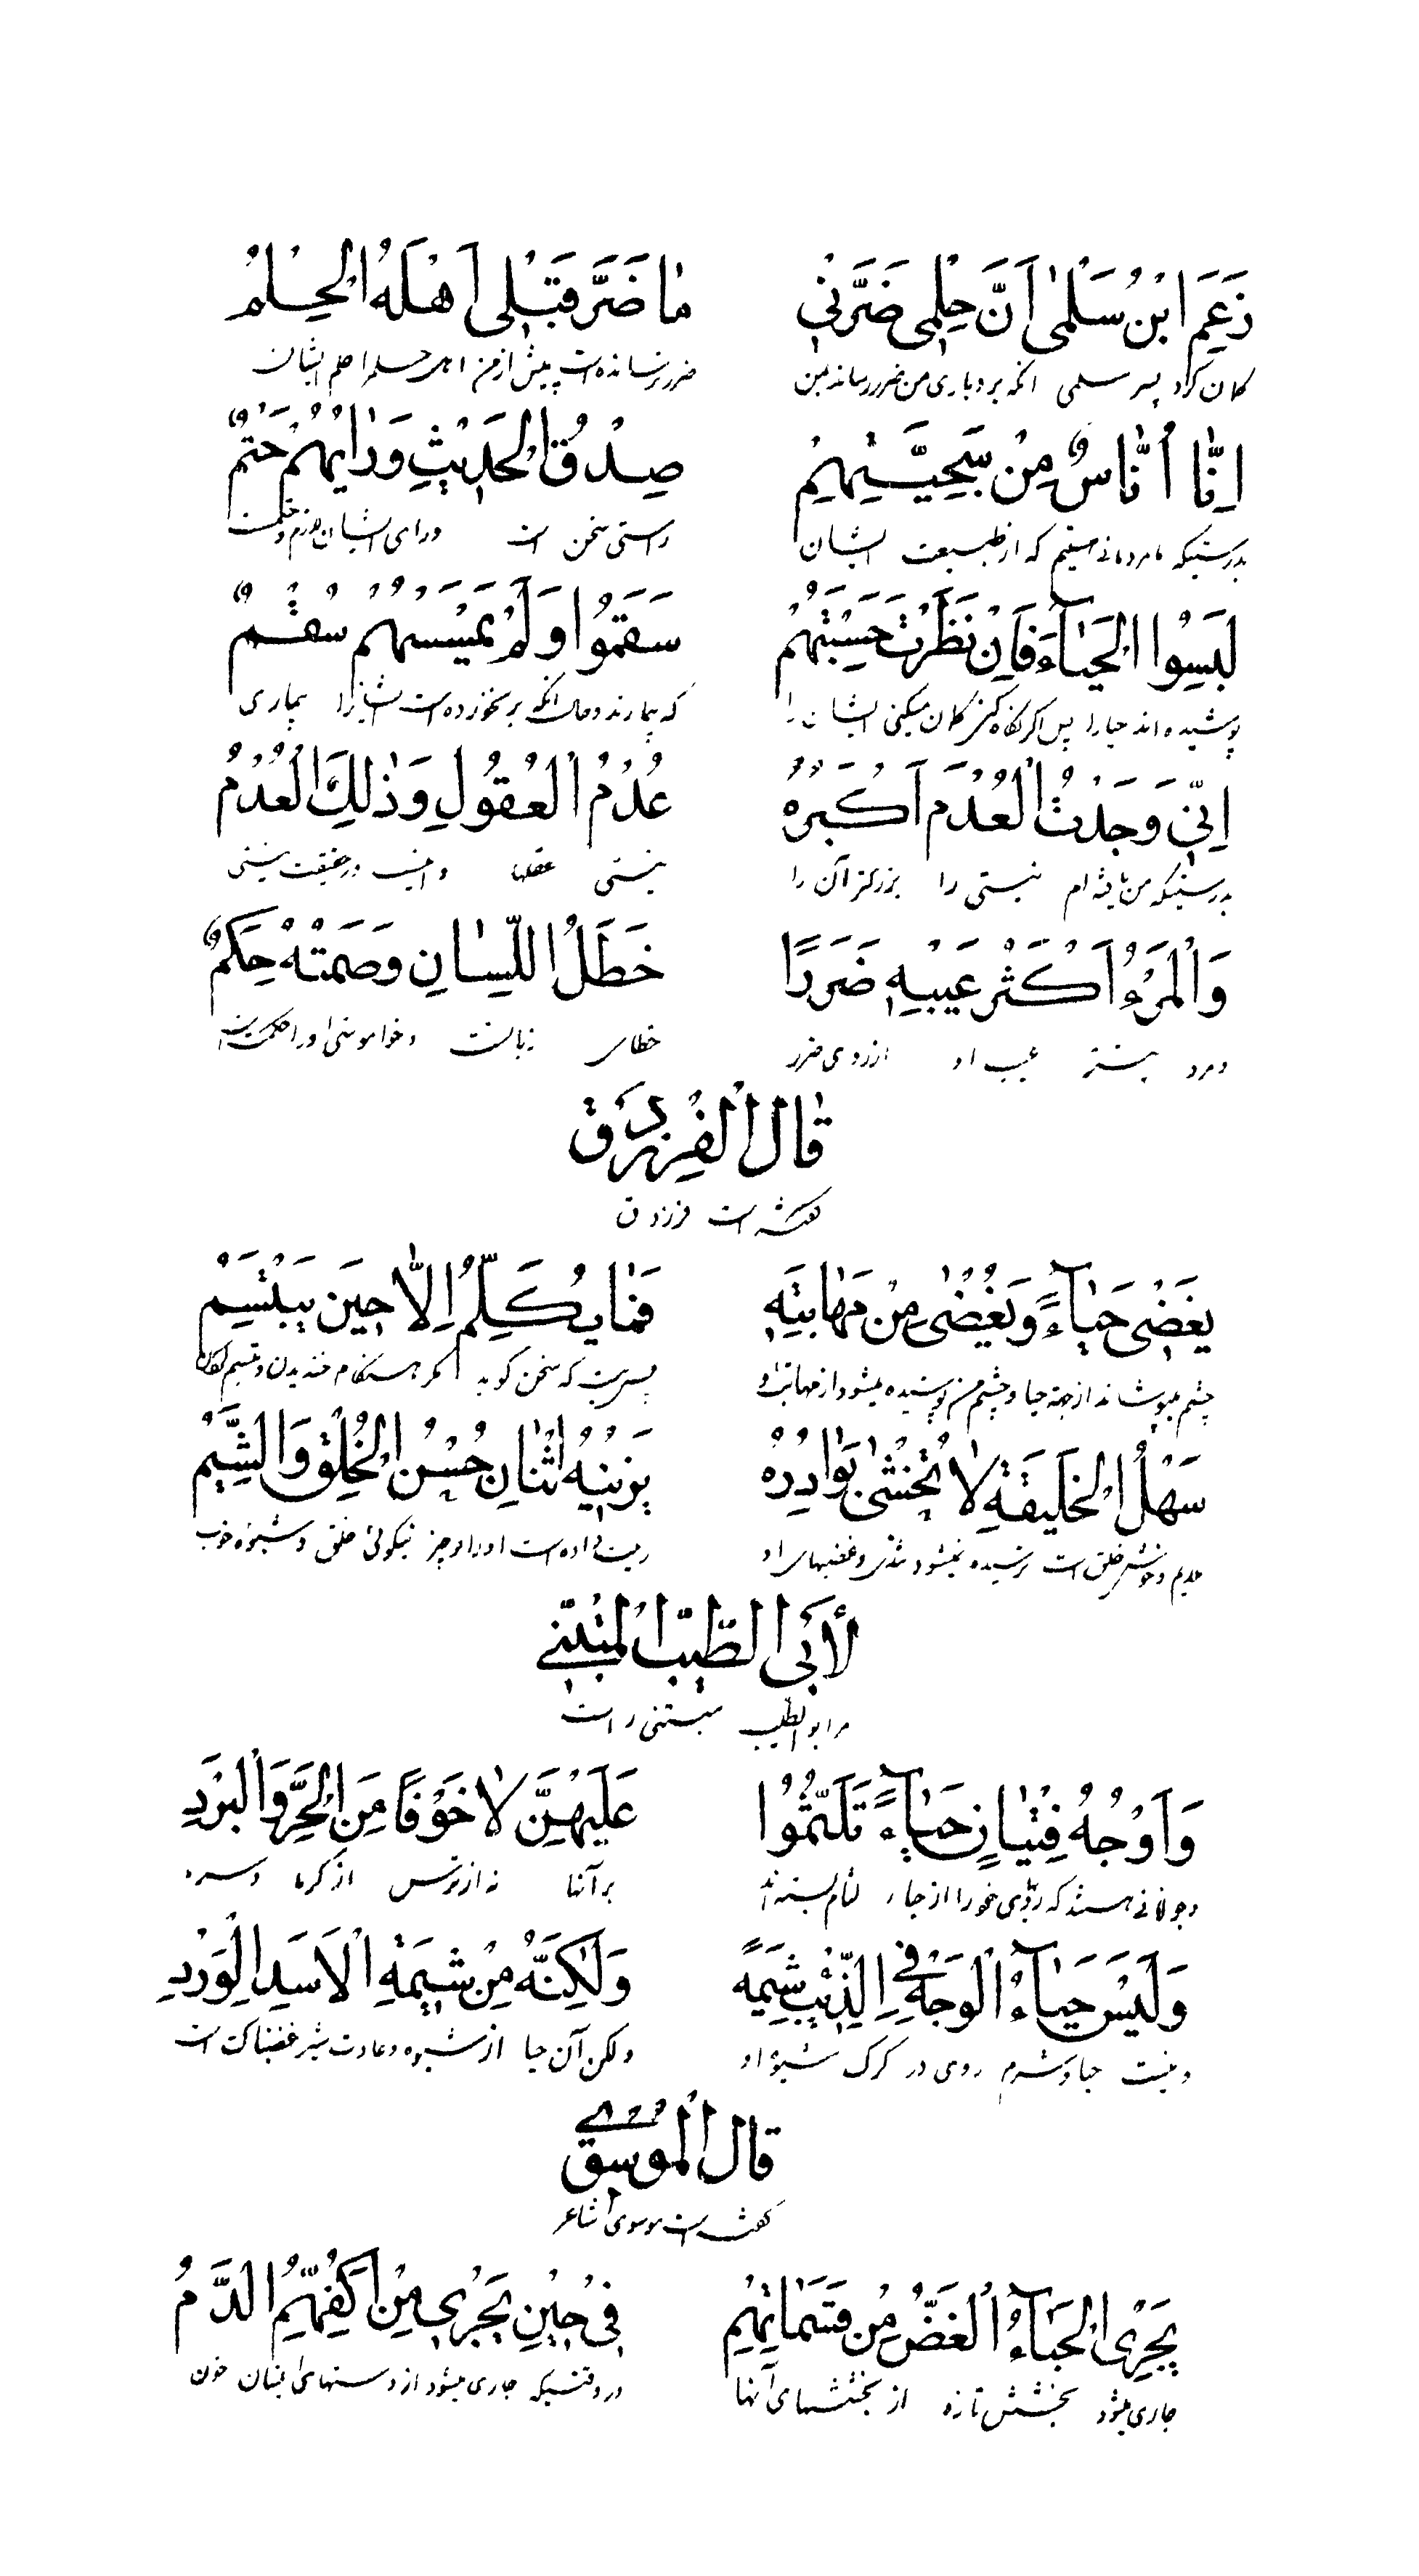 زَعَمَ ابْنُ سَلْمٰى اَنَّ حِلْمِى ضَرَّنِى مٰا ضَرَّ قَبْلِى اَهْلَهُ الْحِلْمُ
کمان کرد پسر سلمی انکه بردباری من ضرر رساند بمن ضرر نرسانده است پیش از من اهل حلم را حلم ایشان
اِنّٰا اُنٰاسٌ مِنْ سَجِيَّتِهِمْ صِدْقُ الْحَدِيْثِ وَرَاْيُهُمْ حَتْمٌ
بدرستیکه ما مردمانی هستیم که از طبیعت ایشان راستی سخن است ورای ایشان لازم و
لَبِسُوا الْحَيٰاۤءَ فَاِنْ نَظَرْتَ حَسِبْتَهُمْ سَقِمُوا وَلَمْ يَمْسَسْهُمُ سُقْمٌ
پوشیده اند حیا را پس اگر نگاه کنی کمان میکنی ایشان را که بیمارند وحال انکه برنخورده است ایشانرا بیماری
اِنِّى وَجَدْتُ الْعُدْمَ اَكْبَرُهُ عُدْمُ الْعُقُولِ وَذٰلِكَ الْعُدْمُ
بدرستیکه من یافته ام نیستی را بزرگتر آن را نیستی عقلها و این در حقیقت نیستی
وَالْمَرْءُ اَكْثَرُ عَيْبِهِ ضَرَرًا خَطَلُ اللِّسٰانِ وَصَمْتُهُ حِكَمٌ
ومرد بیشتر عیب او از روی ضرر خطای زبانست وخواموشی اورا
قٰالَ الْفَرَزْدَق
گفته است فرزدق
يُغْضِى حَيٰاۤءً وَيُغْضٰى مِنْ مَهٰابَتِهِ فَمٰا يُكَلِّمُ اِلّٰا حِيْنَ يَبْتَسِمُ
چشم میپوشاند از جهة حیا وچشم پوشیده میشود از مهابت او پس نیست که سخن کوید مگر هنگام خندیدن وتبسم
سَهْلُ الْخَلِيقَةِ لٰا تُخْشٰى بَوٰادِرُهُ يَزِيْنُهُ اثْنٰانِ حُسْنُ الْخُلْقِ وَالشِّيَمُ
وخوش خلق است ترسیده نمیشود تندی وغضبهای او زینت داده است اورا دو چیز نیکوئی خلق وشیوه خوب
لِأَبِى الطَّيِّبِ الْمُتَنَبِّى
مر ابو الطیب متنبی راست
وَاَوْجُهُ فِتْيٰانٍ حَيٰاۤءً تَلَثَّمُوا عَلَيْهِنَّ لٰا خَوْفًا مِنَ الْحَرِّ وَالْبَرْدِ
وجوانانی هستند که روی خود را از حیاء لثام بسته اند بر آنها نه از ترس از کرما وسرما
وَلَيْسَ حَيٰاۤءُ الْوَجْهِ فِى الذِّئْبِ شِيْمَةً وَلٰكِنَّهُ مِنْ شِيْمَةِ الْاَسَدِ الْوَرْدِ
ونیست حیا وشرم روی در کرک شیوه او ولکن آن حیا از شیوه وعادت شیر غضبناکست
قٰالَ الْمُوسَوِى
گفته است موسوی شاعر
يَجْرِى الْحَيٰاۤءُ الْغَضُّ مِنْ قَسَمٰاتِهِمْ فِى حِيْنِ يَجْرِى مِنْ اَكُفِّهِمُ الدَّمُ
جاری میشود بخشش تازه از بخششهای آنها در وقتیکه جاری میشود از دستهای ایشان خون